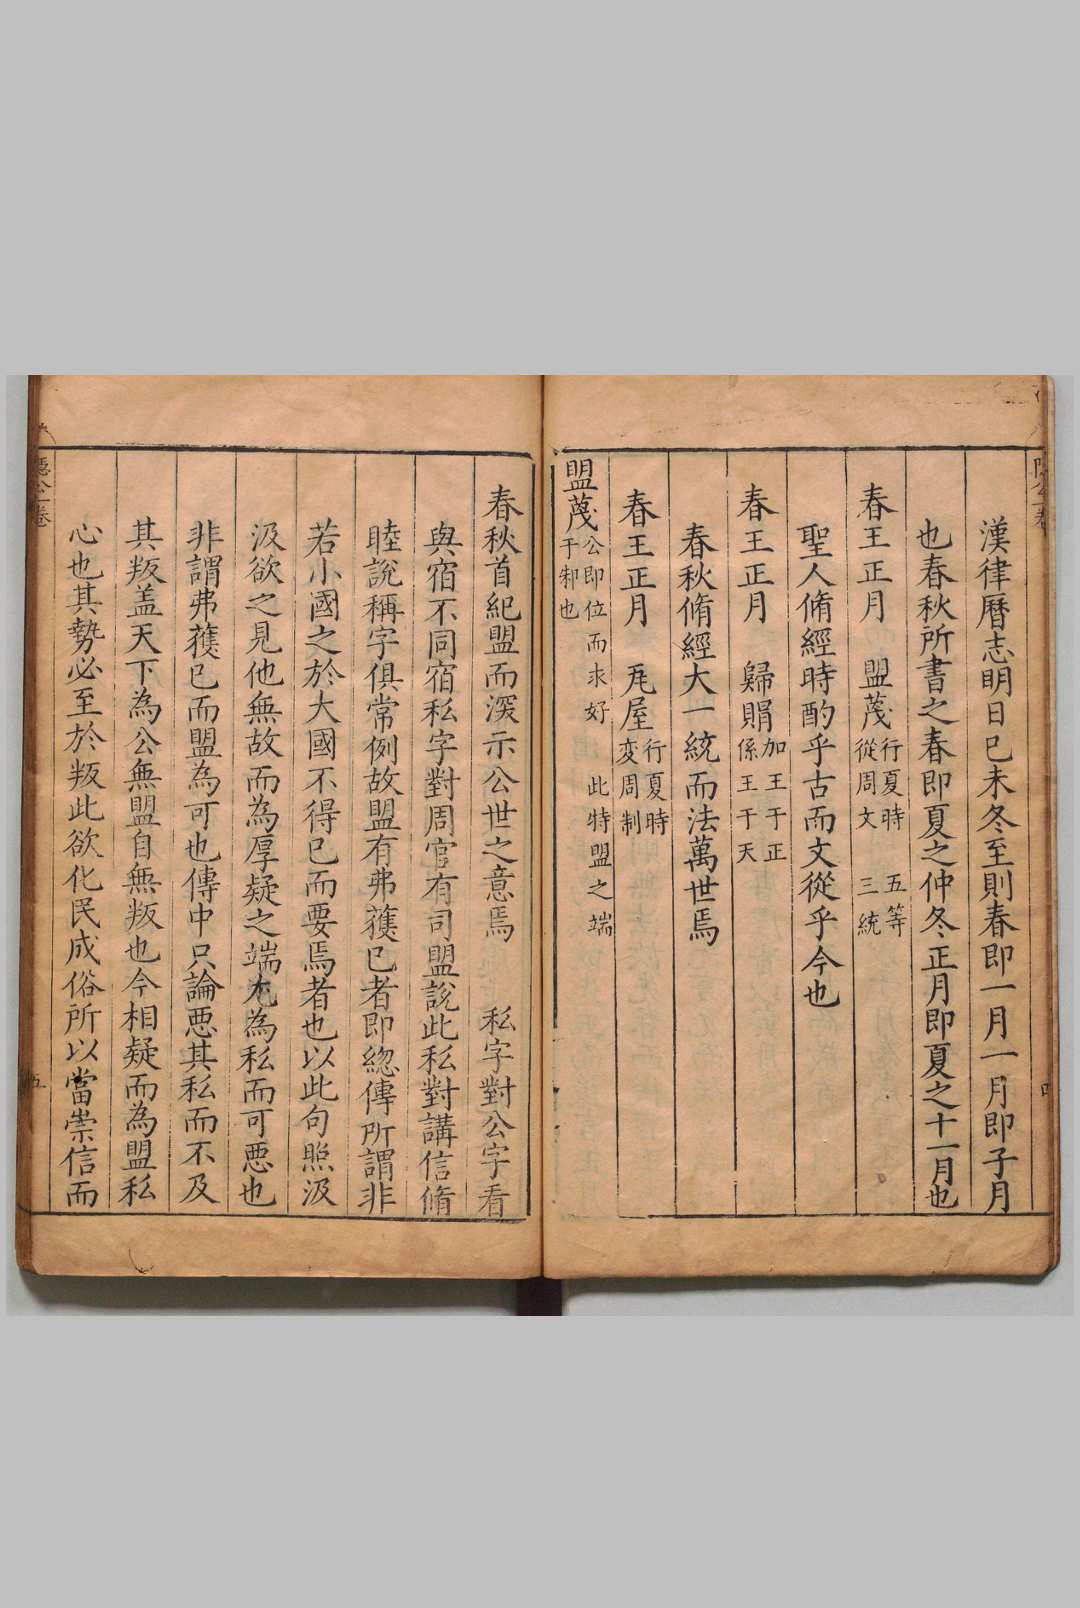 漢律曆志明日己未冬至則春即一月一月即子月
也春秋所書之春即夏之仲冬正月即夏之十一月也
春王正月 盟蔑 行夏時 五等
從周文 三統
聖人脩經時酌乎古而文從乎今也
春王正月 歸賵 加王于正
係王于天
春秋脩經大一統而法萬世焉
春王正月 瓦屋 行夏時
变周制
盟蔑 公即位而求好 此特盟之端
于邾也
春秋首紀盟而深示公世之意焉 私字對公字看
與宿不同宿私字對周官有司盟說此私對講信脩
睦說稱字俱常例故盟有弗獲已者即緫傳所謂非
若小國之於大國不得已而要焉者也以此句照汲
汲欲之見他無故而為厚疑之端尤為私而可惡也
非謂弗獲已而盟為可也傳中只論惡其私而不及
其叛盖天下為公無盟自無叛也今相疑而為盟私
心也其勢必至於叛此欲化民成俗所以當崇信而
隱公一卷
五
四